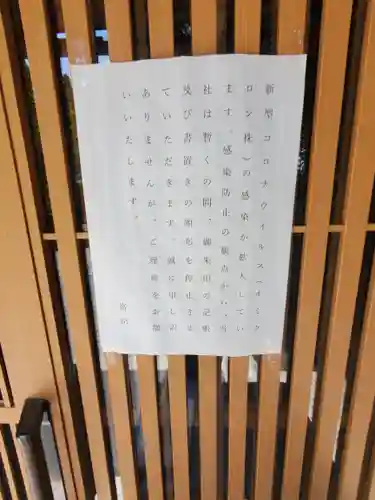 新型コロナウイルス(オミク
ロン株)の感染が拡大してい
ます。感染防止の観点から、当
社は暫くの間、御朱印の記帳
及び書置きの頒布を停止させ
ていただきます。誠に申しの
ありませんが、ご理解をお願
いいたします。
宮司